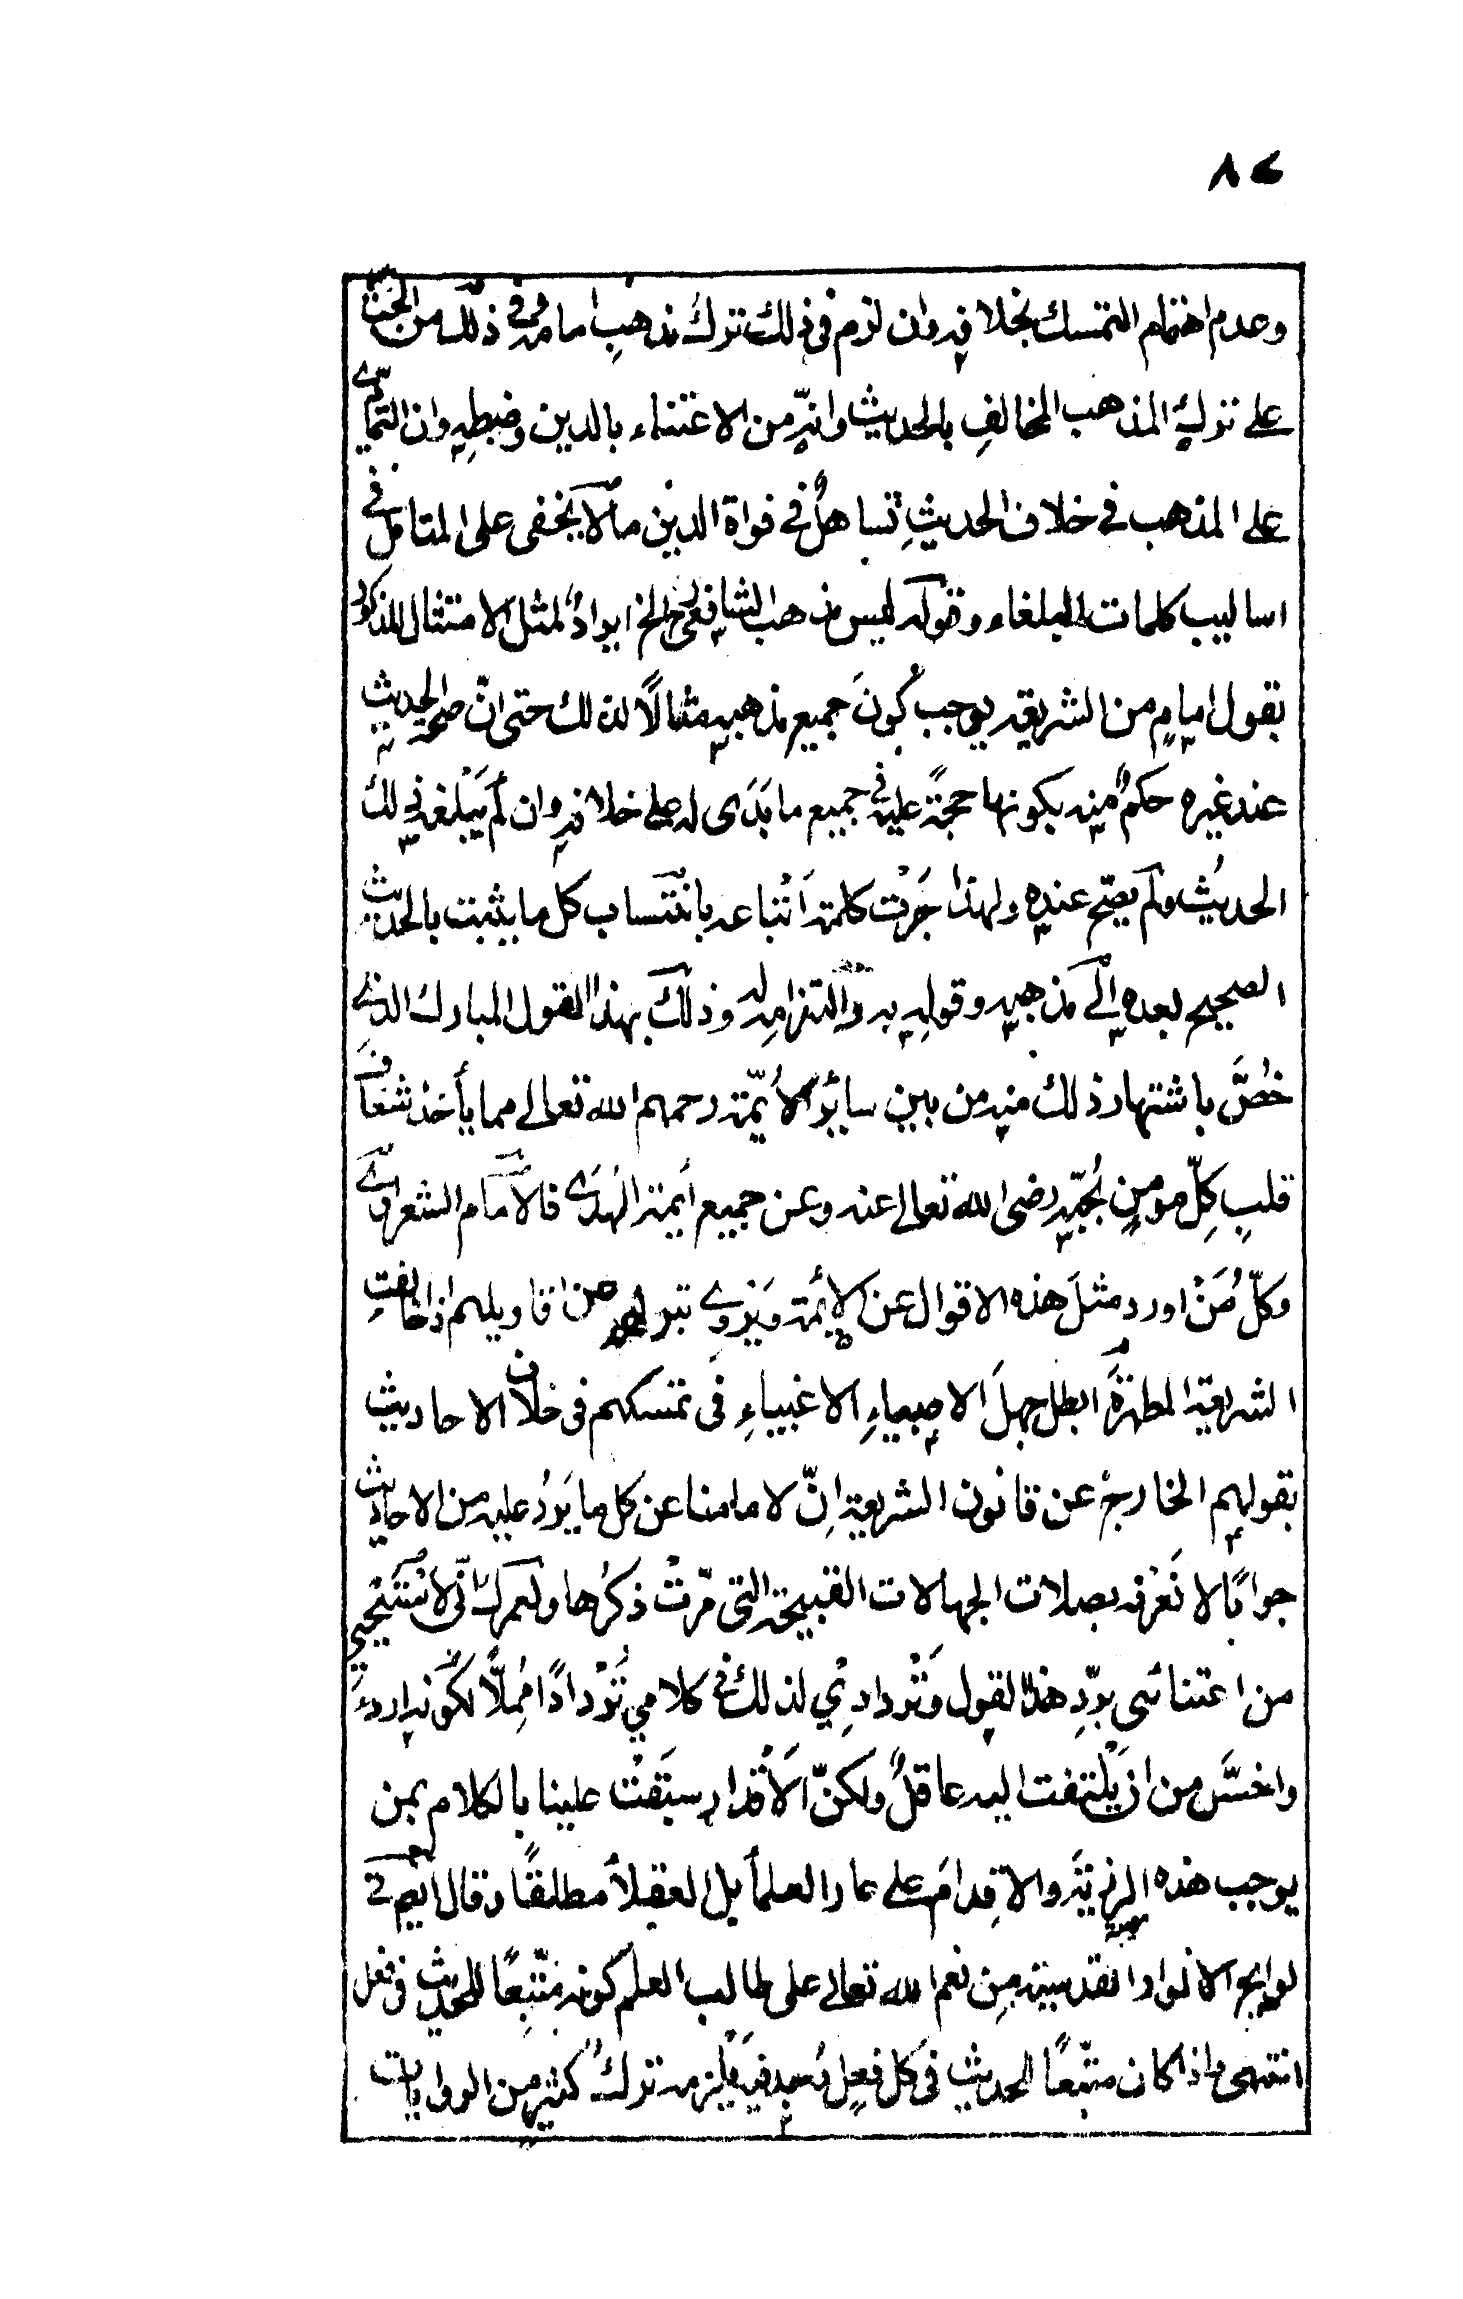 ٨٢
وعدم اهتمام التمسك بخلافه وان لزم في ذلك ترك مذهب امامه وفي ذلك من الحث
على ترك المذهب المخالفِ بالحديث وانه من الاعتناء بالدين وضبطه وان التمادي
على المذهب في خلاف الحديثِ تساهلٌ في فواة الدين مالا يخفى على المتامل في
اساليب كلمات البلغاء وقوله ليس مذهب الشافعي رح الخ ايرادٌ لمثل الامتثال المذكور
بقول امامٍ من الشريعة يوجب كونَ جميع مذهبه مثالًا لذلك حتى انّ صحة الحديث
عند غيره حكمٌ منه بكونها حجةً عليه في جميع ما بَدَى له على خلافه وان لم يَبْلغه ذلك
الحديثُ ولم يصّح عنده ولهذا جَرَتْ كلمة اَتْباعه بانتساب كل ما يثبت بالحديث
الصحيح بعده اِلى مذهبه وقوله به والتزامه له وذلك بهذا القول المبارك الذي
خُصَّ باشتهار ذلك منه من بين سائر الأئمّة رحمهم الله تعالى مما يأخذ شغافَ
قلبِ كلّ مومنٍ بُحبّه رضى الله تعالى عنه وعن جميع أيمة الهُدَى فالاَمام الشعراني
وكلّ مَنْ اورد مثلَ هذه الاقوال عن الأئمة ويَرْوي تبريهم من اقاويلهم اذا خالفت
الشريعة المطهرةَ ابطل جهلَ الاصبياءِ الاغبياءِ في تمسكهم في خلاف الاحاديث
بقولهم الخارج عن قانون الشريعة اِنّ لامامنا عن كل ما يَرِدُ عليه من الاحاديث
جوابًا لا نَعْرفه بصلات الجهالات القبيحة التي مرّتْ ذكرُها ولعمرك انّى لاَسْتَحْيي
من اعتنائى بردِّ هذا القول وتَرْدادِي لذلك في كلامي تَرْدادًا مُمِلًّا لكونه ارداءَ
واخسَّ من ان يَلْتفت اليه عاقلٌ ولكنّ الاَقْدار سبَقتْ علينا بالكلام بمن
يوجب هذه الرزيّة والاقدامَ على عار العلمأ بل العقلأ مطلقًا وقال ايضم في
لوايح الانوار القدسية مِن نعم الله تعالى على طالب العلم كونه متّبِعًا للحديث في فعل
انتهى واذا كان متّبعًا الحديث في كل فعلٍ فيلزمه تركُ كثيرٍ من الروايات